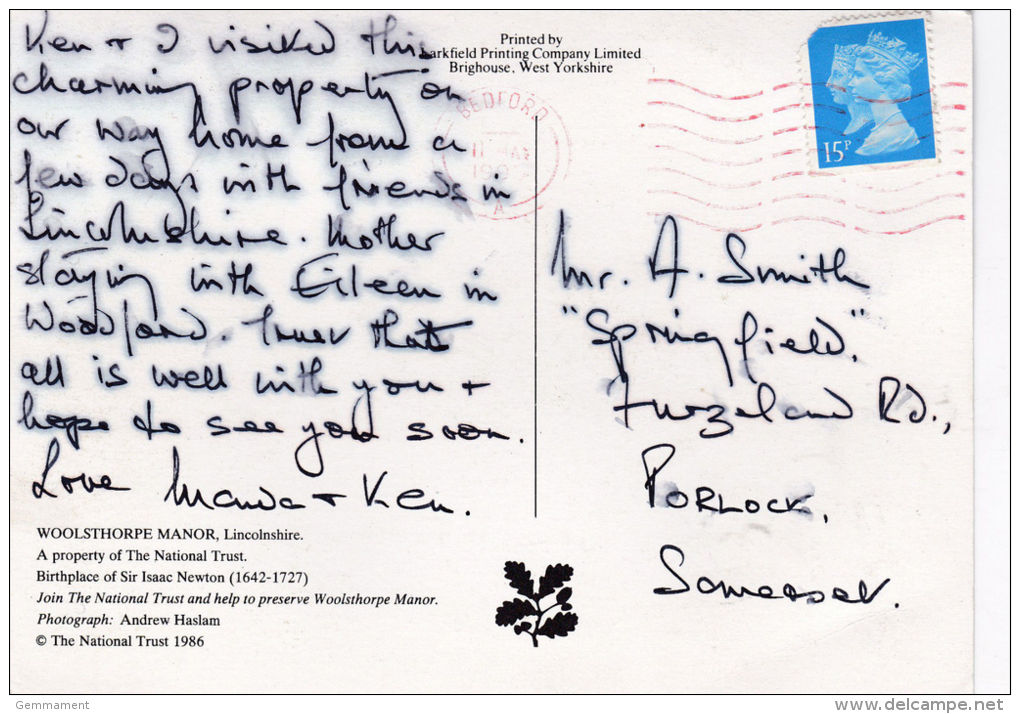 Ken + I visited this
charming property on
our way home from a
few days with friends in
Lincolnshire. Mother
staying with Eileen in
Woodford. Trust that
all is well with you +
hope to see you soon.
Love + Ken.
WOOLSTHORPE MANOR, Lincolnshire.
A property of The National Trust.
Birthplace of Sir Isaac Newton (1642-1727)
Join The National Trust and help to preserve Woolsthorpe Manor.
Photograph: Andrew Haslam
© The National Trust 1986
Printed by
Larkfield Printing Company Limited
Brighouse, West Yorkshire
BEDFORD
A
15P
Mr. A. Smith
"Springfield,"
Furzeland Rd.,
PORLOCK,
Somerset.
Gemmament
www.delcampe.net